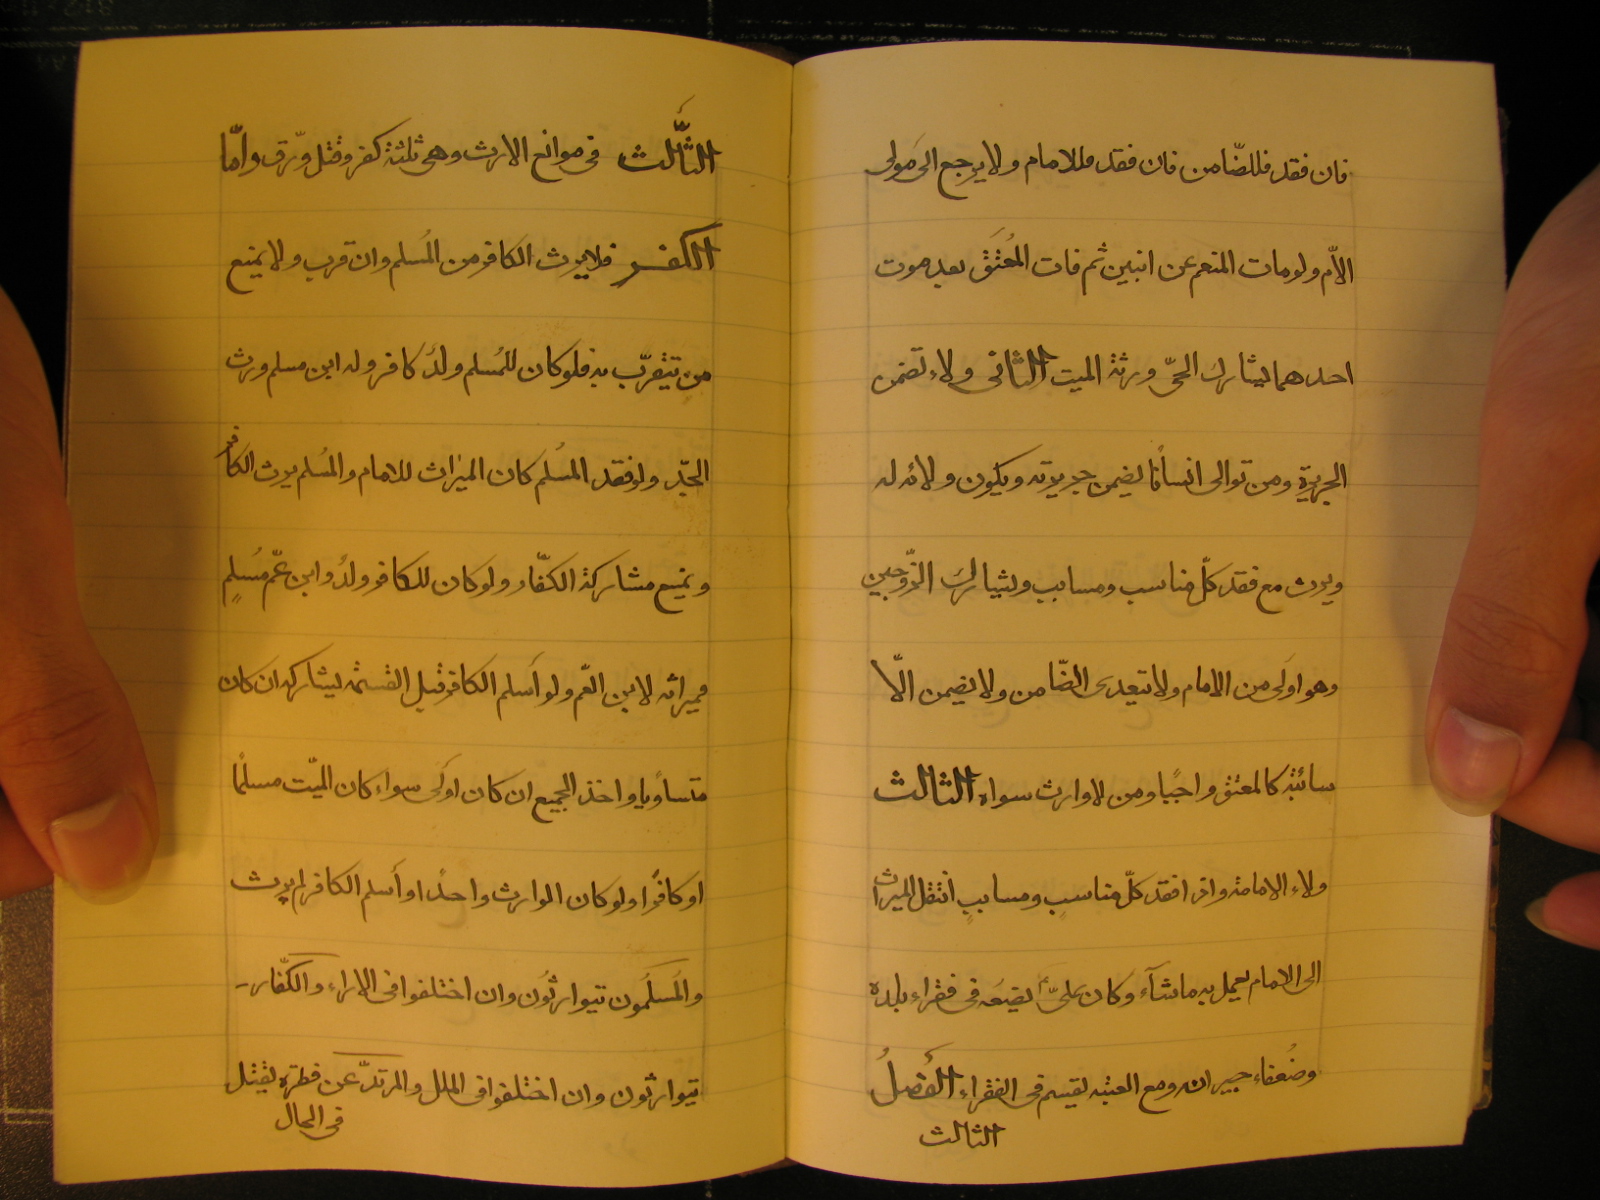 فان فقد فللضّامن فان فقد فللامام ولا يرجع الى مَولى
الاّم ولو مات المنعم عن ابنين ثم مات المُعتَق بعد موت
احدهما يشارك الحىّ ورثة الميت الثانى ولاء تضمن
الجريرة ومن توالى انسأنا يضمن جريرته ويكون ولائه له
ويرث مع فقد كلّ مناسب ومسابب ويشارك الزّوجين
وهو اولَى من الامام ولا يتعدى الضّامن ولا يضمن الّا
سائبة كالمعتق واجبًا ومن لا وارث سواه الثالث
ولاء الامامة واذا فقد كلّ مناسبٍ ومساببٍ انتقل الميراث
الى الامام يعمل به ماشآء وكان علىّ ع يضعَه فى فقراء بلده
وضُعفاء جيرانه ومع الغيبه يقسم فى الفقراء الفصلُ
الثالث
الثَّالث فى موانع الارث وهى ثلثة كفر وقتل ورّق وامّا
الكفر فلا يرث الكافر من المُسلم وان قرب ولا يمنع
من يتقرّب به فلو كان للمُسلم ولدٌ كافر وله ابن مسلم ورث
الجدّ ولو فقد المسُلم كان الميراث للامام والمسُلم يرث الكافر
ويمنع مشاركة الكفّار ولو كان للكافر ولدٌ وابن عّم مسُلمٍ
فميراثه لابن العّم ولو اَسلم الكافر قبل القسمة يشاركه ان كان
متسأويا واخذ الجميع ان كان اولَى سواء كان الميّت مسلمًا
او كافرًا ولو كان الوارث واحدًا او اَسلم الكافر لم يرث
والمُسلمُون يتوارثوُن وان اختلفوا فى الاراء والكفّار
يتوارثون وان اختلفوا فى الملل والمرتدّ عن فطرةٍ يقتل
فى الحال